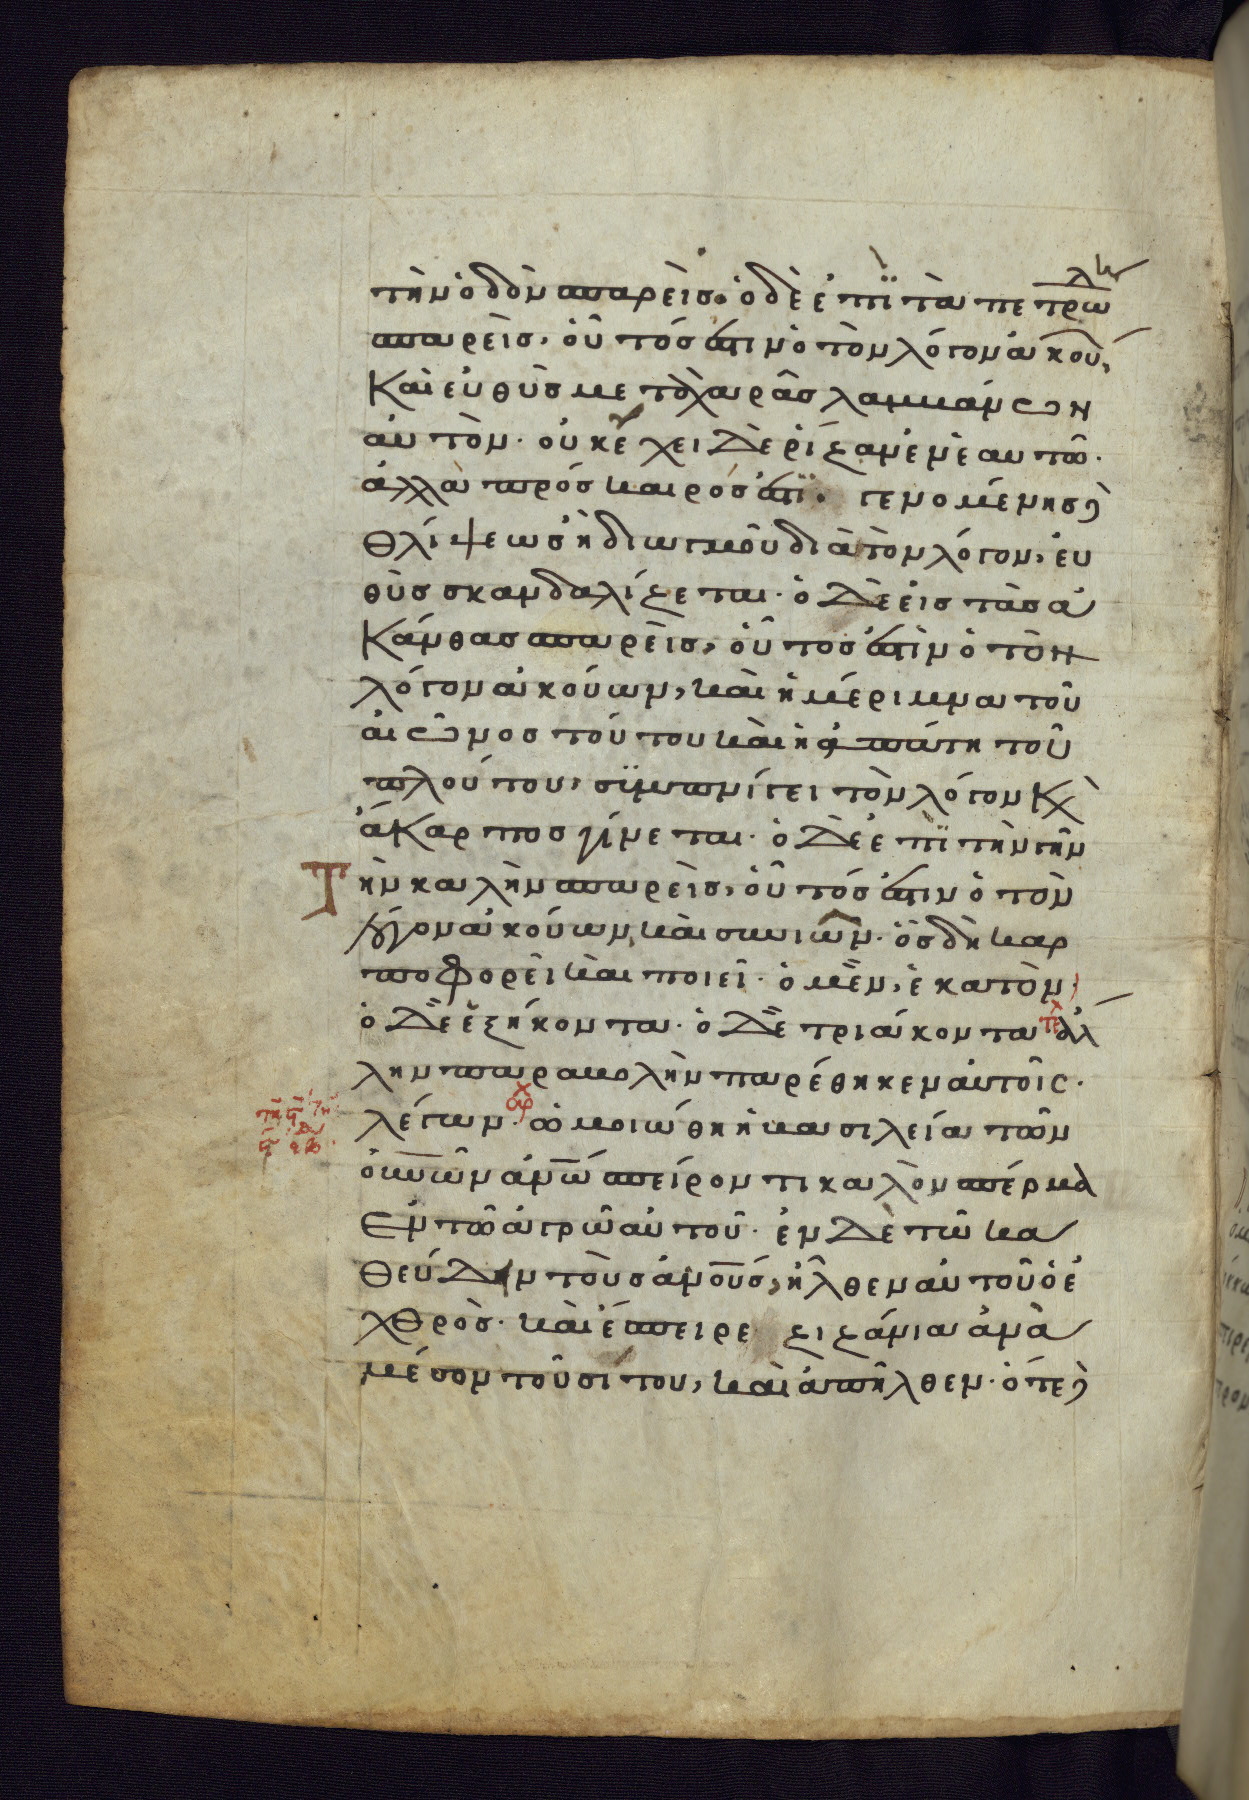 τὴν ὁδὸν σπαρεὶς· ὁ δὲ ἐπῒ τὰ πετρω
σπαρεὶς, οὗτός ἐστιν ὁ τὸν λόγον ἀκού,
Καὶ εὐθὺς μετὰ χαρᾶς λαμβάνων
αὐτὸν. οὐκ ἔχει δὲ ρίζαν ἐν ἑαυτῶ.
ἀλλὰ πρόσκαιρός ἐστϊ. γενομένης δὲ
θλίψεως ἢ διωγμοῦ διὰ τὸν λόγον, εὐ
θὺς σκανδαλίζεται. ὁ δὲ εἰς τὰς ἀ
Κάνθας σπαρεὶς, οὗτος ἐστὶν ὁ τὸν
λόγον ἀκούων, καὶ ἡ μέριμνα τοῦ
αἰῶνος τούτου καὶ ἡ ἀπάτη τοῦ
πλούτου, συμπνίγει τὸν λόγον κὶ
ἄκαρπος γίνεται. ὁ δὲ ἐπῒ τὴν γῆν
Τὴν καλὴν σπαρεὶς, οὗτός ἐστιν ὁ τὸν
λόγον ἀκούων, καὶ συνιῶν. ὃς δὴ καρ
ποφορεῖ καὶ ποιεῖ. ὁ μὲν, ἑκατὸν,
ὁ δὲ ἑξήκοντα. ὁ δὲ τριάκοντα τε ἄλ
λην παραβολὴν παρέθηκεν αὐτοῖς.
λέγων. αρ ὡμοιώθη ἡ βασιλεία τῶν
οὐνῶν ἀνῶ σπείροντι καλὸν σπέρμα
Ἐν τῶ ἀγρῶ αὐτοῦ. ἐν δὲ τῶ κα
θεύδειν τοὺς ἀνοὺς, ἦλθεν αὐτοῦ ὁ ἐ
χθρὸς. καὶ ἔσπειρε ζιζάνια ἀνὰ
μέσον τοῦ σίτου, καὶ ἀπῆλθεν. ὅτε δὲ